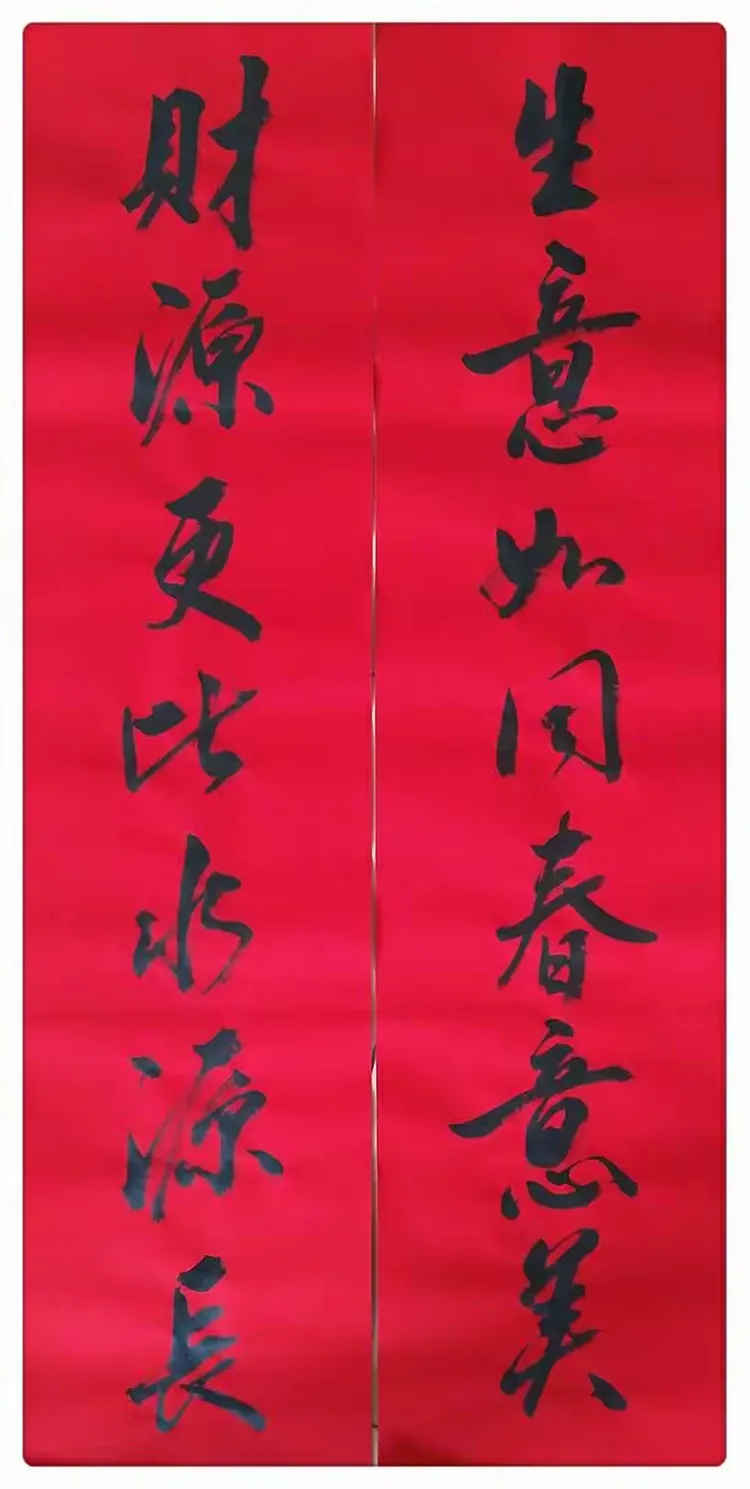 生意如同春意美
財源更比水源長